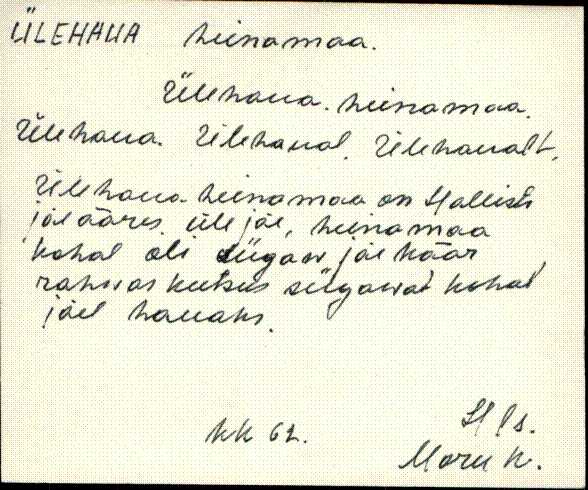 ÜLEHAUA heinamaa.
Ülehaua. heinamaa.
Ülehaua. Ülehaual. Ülehaualt.
Ülehaua heinamaa on Hallists
jõe ääres üle jõe, heinamaa
kohal oli sügaw jõe käär,
rahwas kutsus sügawat kohat
jõel hauaks.
KK 62.
Hls.
Moru K.